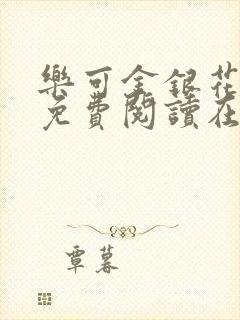 樂可金銀花
免費閱讀在
覃暮